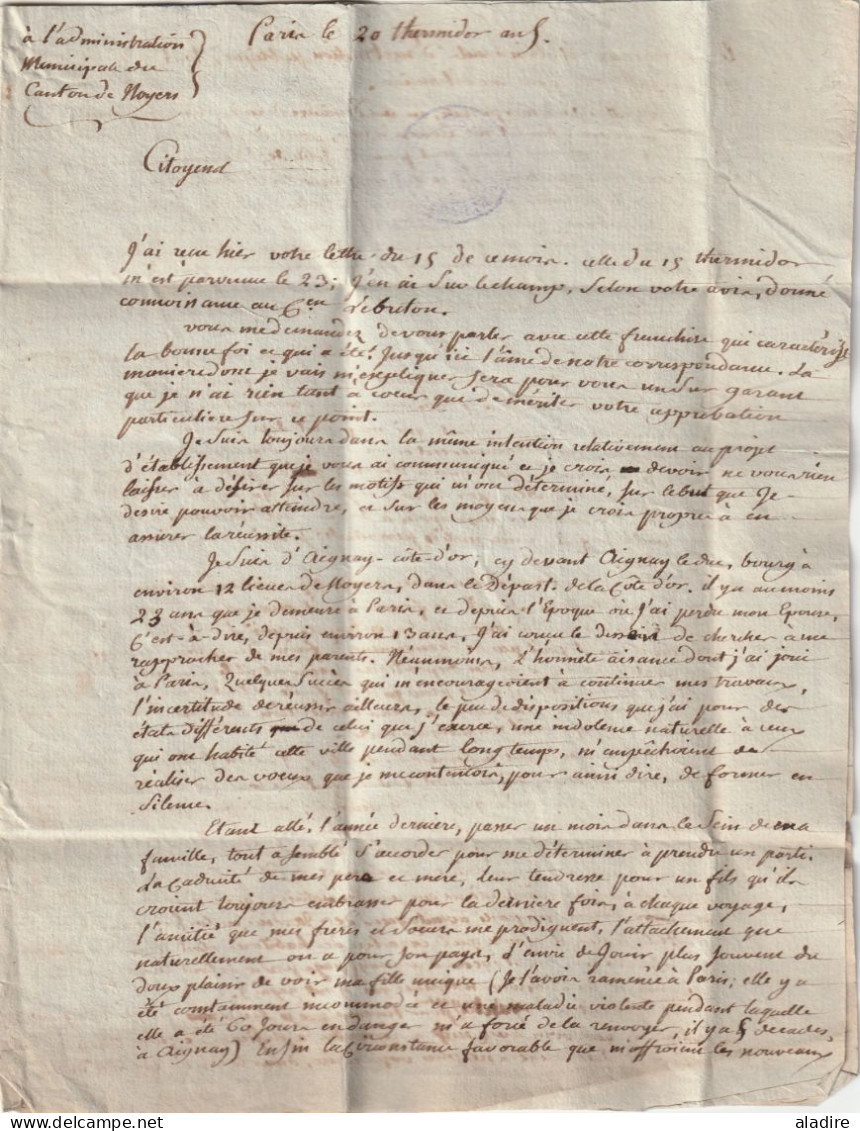 à l'administration
Municipale du
Canton de Noyers
Paris le 20 thermidor an 5.
Citoyens
J'ai recu hier votre lettre du 15 de ce mois. celle du 15 thermidor
m'est parvenue le 23; j'en ai sur le champ, selon votre avis, donné
connoissance au C.en Lebreton.
vous me demandez de vous parler avec cette franchise qui caractérise
la bonne foi et qui a été jusqu'ici l'âme de notre correspondance. La
maniere dont je vais m'expliquer sera pour vous un sur garant
que je n'ai rien tant à coeur que de mériter votre approbation
particuliere sur ce point.
Je suis toujours dans la même intention relativement au projet
d'établissement que je vous ai communiqué et je crois devoir ne vous rien
laisser à désirer sur les motifs qui m'ont déterminé, sur le but que je
desire pouvoir atteindre, et sur les moyens que je crois propre à en
assurer la réussite.
Je suis d'Aignay-côte-d'or, cy devant Aignay le duc, bourg à
environ 12 lieues de Noyers, dans le Départ. de la Côte d'or. il y a au moins
23 ans que je demeure à Paris, et depuis l'Epoque où j'ai perdu mon Epouse,
C'est-à-dire, depuis environ 13 ans, j'ai concu le dessein de chercher à me
rapprocher de mes parents. Néanmoins, l'honnête aisance dont j'ai joui
à Paris, quelques succès qui m'encourageoient à continuer mes travaux,
l'incertitude de réussir ailleurs, le peu de dispositions que j'ai pour des
états différents de celui que j'exerce, une indolence naturelle à ceux
qui ont habité cette ville pendant long temps, m'empêchoient de
réaliser des voeux que je me contentois, pour ainsi dire, de former en
silence.
Etant allé, l'année dernière, passer un mois dans le sein de ma
famille, tout a semblé s'accorder pour me déterminer à prendre un parti.
La caducité de mes pere et mère, leur tendresse pour un fils qu'ils
croient toujours embrasser pour la derniere fois, à chaque voyage,
l'amitié que mes freres et soeurs me prodiguent, l'attachement que
naturellement on a pour son pays, l'envie de jouir plus souvent du
doux plaisir de voir ma fille unique (je l'avois ramenée à Paris; elle y a
été constamment incommodée et une maladie violente pendant laquelle
elle a été 60 jours en danger m'a forcé de la renvoyer, il y a 5 decades,
à Aignay) Enfin la Circonstance favorable que m'offroient les nouveaux
aladire